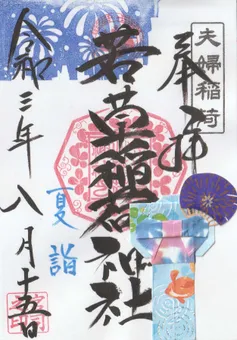 夫婦稲荷
奉拝
若葉稲荷神社
夏詣
令和三年
八月十五日